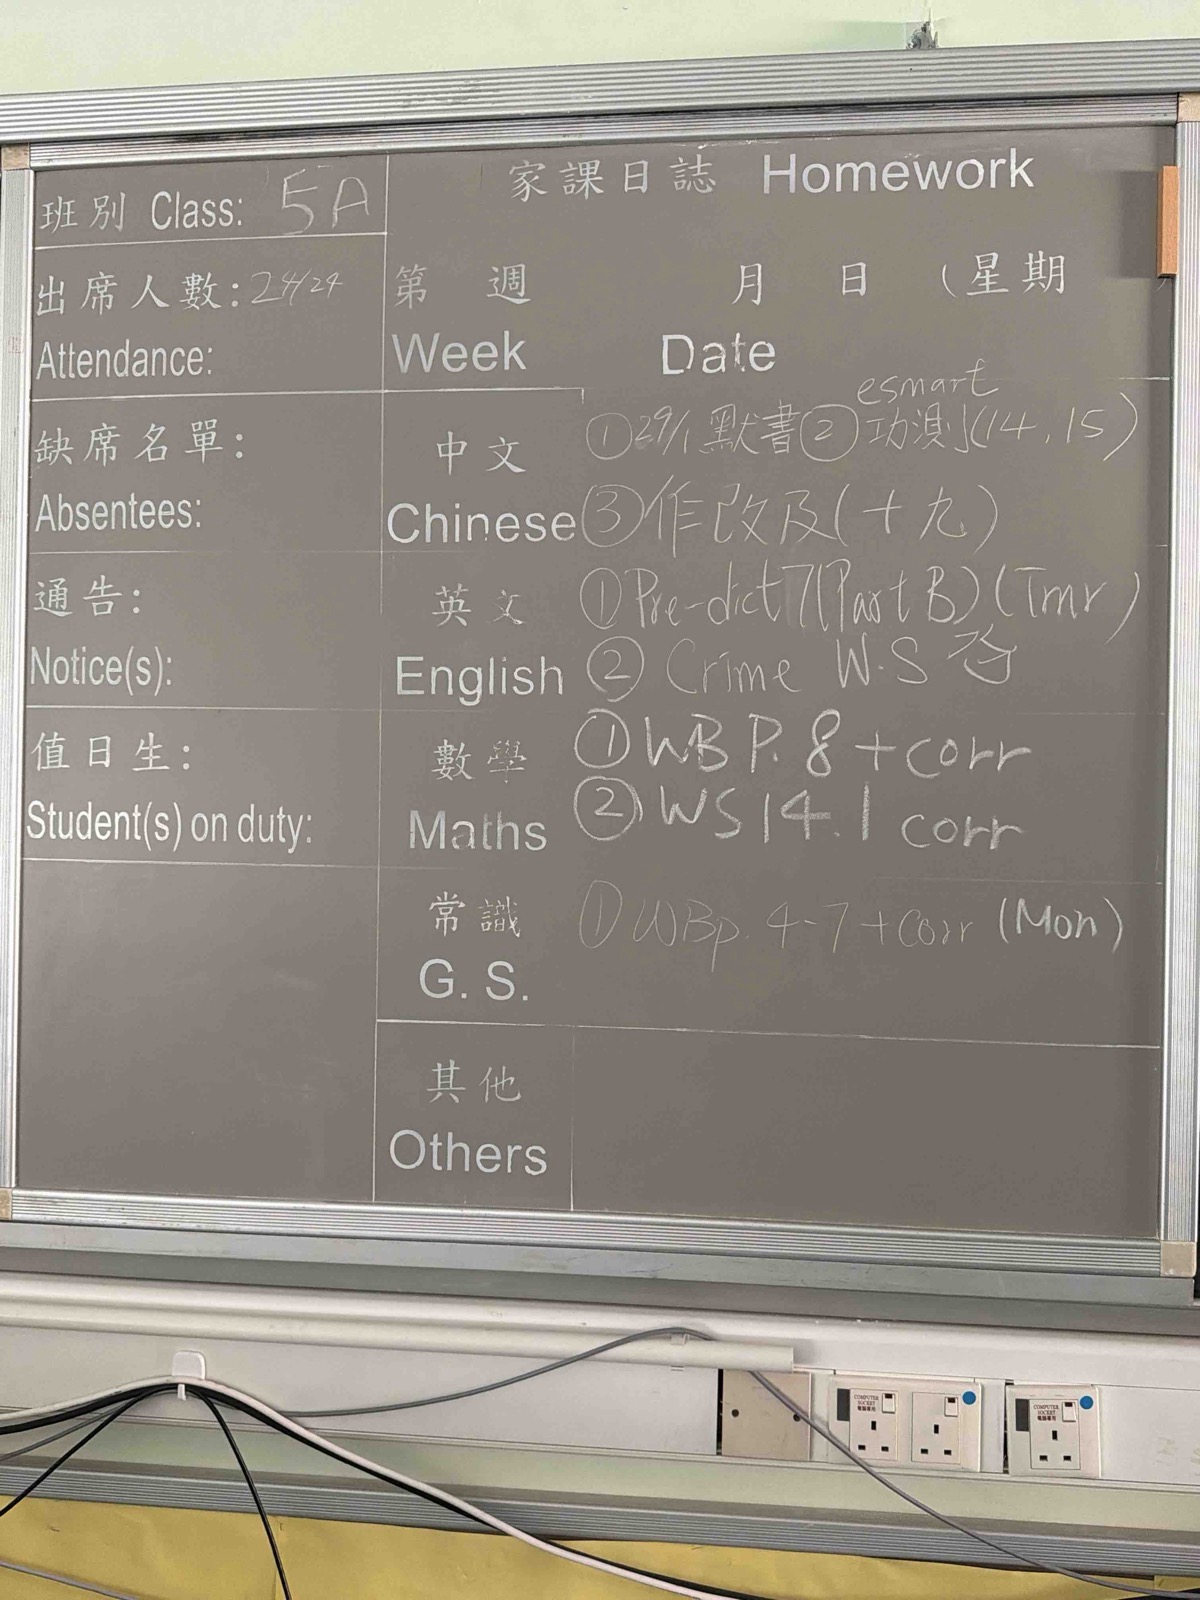 家課日誌 Homework
班別 Class: 5A
出席人數: 24/24
Attendance:
第 週 月 日 (星期
Week Date
缺席名單:
Absentees:
通告:
Notice(s):
值日生:
Student(s) on duty:
中文
Chinese
esmart
①29/1 默書②功測小(14,15)
③作改及(十九)
英文
English
①Pre-dict 7(Part B)(Tmr)
② Crime W.S
數學
Maths
①WB P.8 +corr
②WS 14.1 corr
常識
G. S.
①WBp. 4-7 +corr (Mon)
其他
Others
COMPUTER
SOCKET
電腦專用
COMPUTER
SOCKET
電腦專用